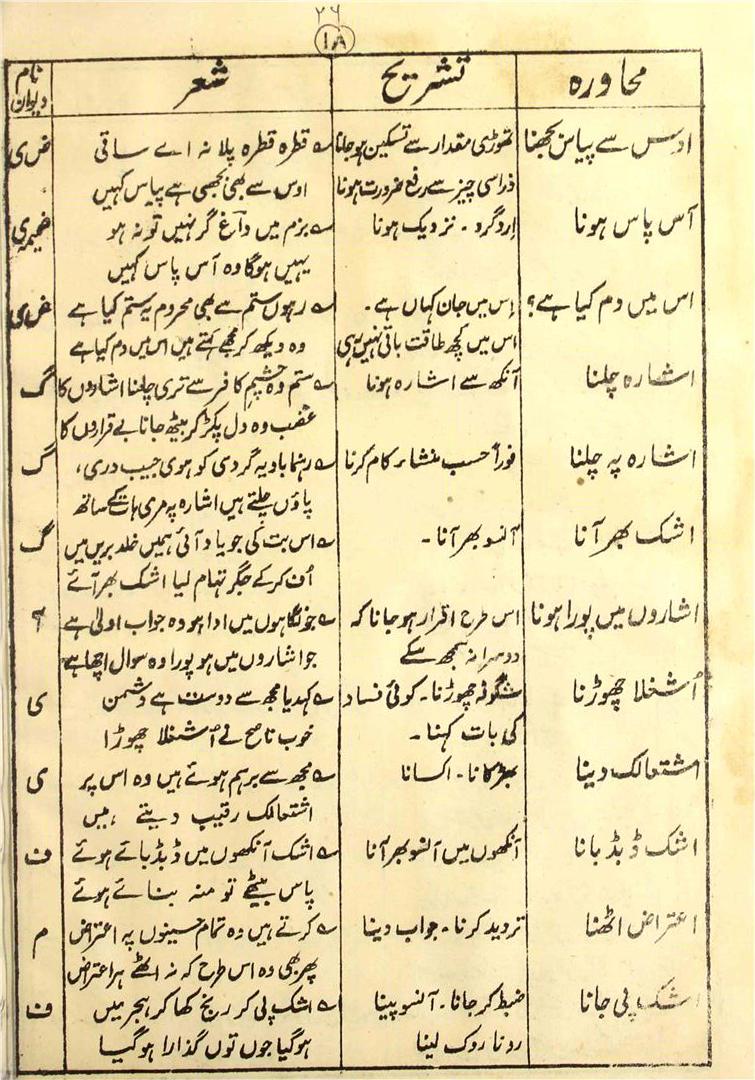 ۲۶
۱۸
محاورہ تشریح شعر نام دیوان
اوس سے پیاس بجھنا تھوڑی مقدار سے تسکین ہوجانا ے قطرہ قطرہ پلا نہ اے ساقی ض ی
ذراسی چیز سے رفع ضرورت ہونا اوس سے بھی بجھی ہے پیاس کہیں
آس پاس ہونا اِردگرد - نزدیک ہونا ے بزم میں داغ گر نہیں تو نہ ہو ضمیمہ ی
یہیں ہوگا وہ آس پاس کہیں
اس میں دم کیا ہے؟ اِس میں جان کہاں ہے - ے رہوں ستم سے بھی محروم یہ ستم کیا ہے ض ی
اس میں کچھ طاقت باقی نہیں رہی وہ دیکھ کر مجھے کہتے ہیں اس میں دم کیا ہے
اشارہ چلنا آنکھ سے اشارہ ہونا ے ستم وہ چشم کافر سے تری چلنا اشاروں کا گ
غضب وہ دل پکڑ کر بیٹھ جانا بے قراروں کا
اشارہ پہ چلنا فوراً حسب منشاء کام کرنا ے رہنما بادیہ گردی کو ہوی جیب دری، گ
پاؤں چلتے ہیں اشارہ پہ مری ہات کے ساتھ
اشک بھر آنا آنسو بھر آنا - ے اس بت کی جو یاد آئی ہمیں خلد بریں میں گ
اُن کرکے جگر تہام لیا اشک بھر آئے
اشاروں میں پورا ہونا اس طرح اقرار ہوجانا کہ ے جو نگاہوں میں ادا ہو وہ جواب اولیٰ ہے
دوسرا نہ سمجھ سکے جو اشاروں میں ہو پورا وہ سوال اچھا ہے
اُشغلا چھوڑنا شگوفہ چھوڑنا - کوئی فساد ے کہدیا مجھ سے دوست ہے دشمن ی
کی بات کہنا - خوب ناصح نے اُشغلا چھوڑا
اشتعالک دینا بھڑکانا - اکسانا ے مجھ سے برہم ہوئے ہیں وہ اس پر ی
اشتعالک رقیب دیتے ہیں
اشک ڈبڈبانا آنکھوں میں آنسو بھر آنا ے اشک آنکھوں میں ڈبڈبائے ہوئے ف
پاس بیٹھے تو منہ بنائے ہوئے
اعتراض اٹھنا تردید کرنا - جواب دینا ے کرتے ہیں وہ تمام حسینوں پہ اعتراض م
پھر بھی وہ اس طرح کہ نہ اٹھے ہر اعتراض
اشک پی جانا ضبط کر جانا - آنسو پینا ے اشک پی کر رنج کھا کر ہجر میں ف
رونا روک لینا ہوگیا جوں توں گذارا ہوگیا